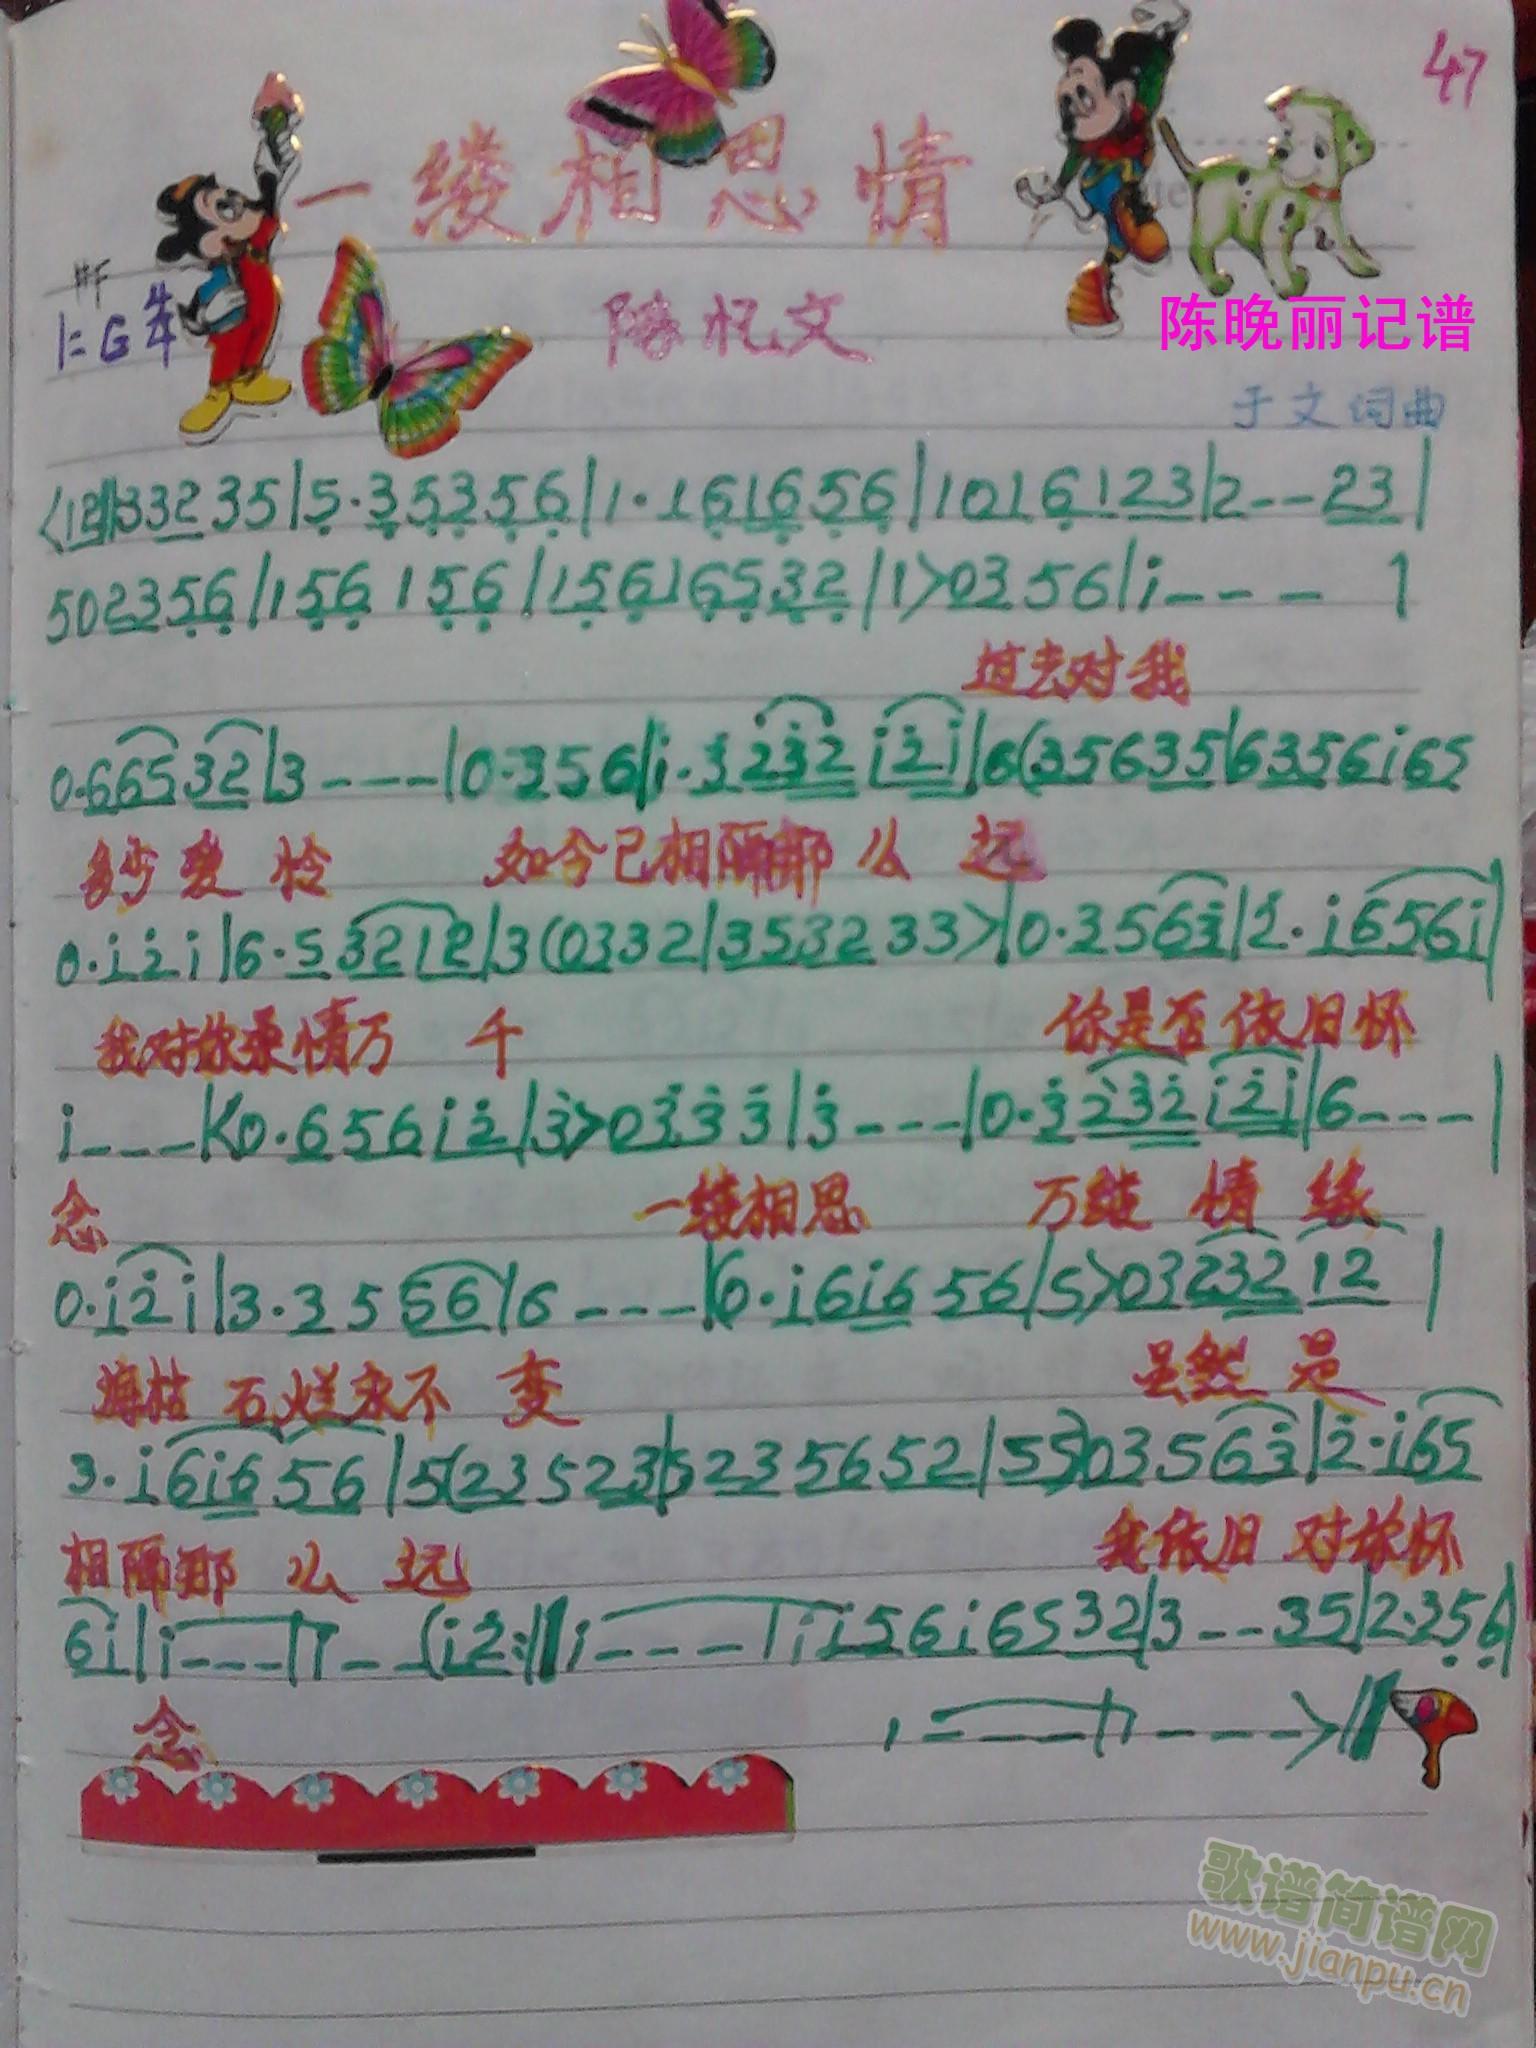 47
一缕相思情
#F
1=G 4/4
陈忆文
陈晚丽记谱
于文词曲
<12‖332 35|5·35356|1·161656|10161 23|2--23|
502356|156 156|156165 32|1>03 56|i---|
过去对我
0·66532|3---|0·356|i·3232 i2i|6(35635|6356i65
多少爱怜 如今已相隔那么远
0·i2i|6·53212|3(0332|3532 33>|0·3563|2·i656i|
我对你柔情万千 你是否依旧怀
i---|<0·656i2|3>0333|3---|0·3232 i2i|6---|
念 一缕相思 万缕情缘
0·i2i|3·3556|6---|6·i6i656|5>03232 12|
海枯石烂永不变 虽然是
3·i6i656|5(23523|5235652|55)03563|2·i65
相隔那么远 我依旧对你怀
6i|i---|i--(i2:‖i---|ii56i6532|3--35|2·356|
念
1---|1--->‖
歌谱简谱网
www.jianpu.cn